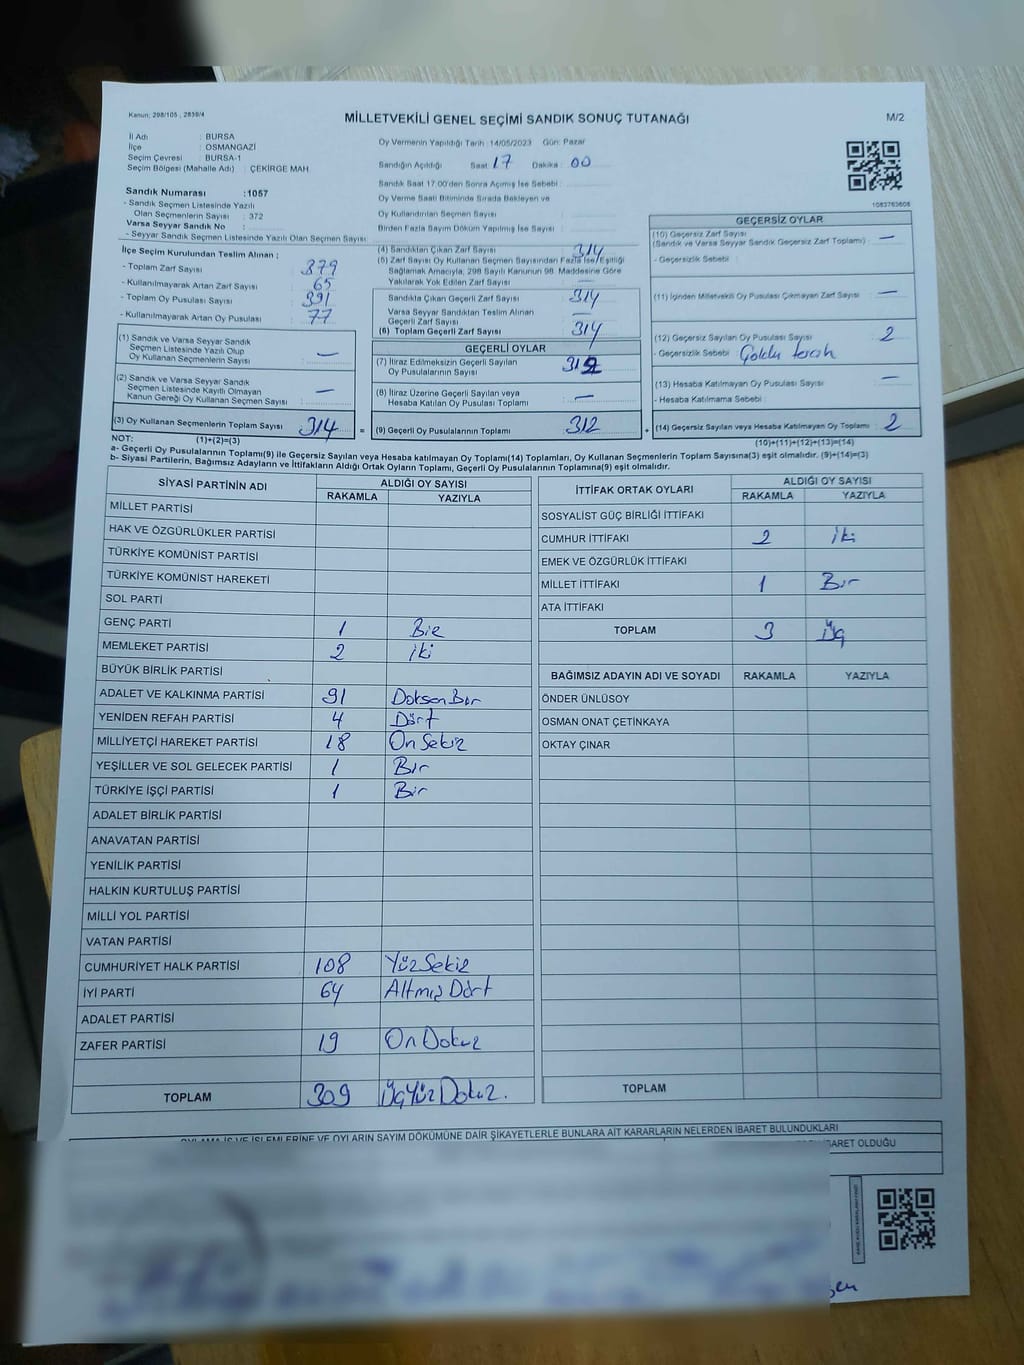 Kanun; 298/105 , 2839/4
MİLLETVEKİLİ GENEL SEÇİMİ SANDIK SONUÇ TUTANAĞI
M/2
İl Adı : BURSA
İlçe : OSMANGAZİ
Seçim Çevresi : BURSA-1
Seçim Bölgesi (Mahalle Adı) : ÇEKİRGE MAH.
Oy Vermenin Yapıldığı Tarih : 14/05/2023 Gün: Pazar
Sandığın Açıldığı Saat : 17 Dakika : 00
Sandık Saat 17:00'den Sonra Açımış İse Sebebi :
Oy Verme Saati Bitiminde Sırada Bekleyen ve
Oy Kullandırılan Seçmen Sayısı :
Birden Fazla Sayım Döküm Yapılmış İse Sayısı :
1083763608
Sandık Numarası :1057
- Sandık Seçmen Listesinde Yazılı
Olan Seçmenlerin Sayısı : 372
Varsa Seyyar Sandık No :
- Seyyar Sandık Seçmen Listesinde Yazılı Olan Seçmen Sayısı:
İlçe Seçim Kurulundan Teslim Alınan ;
- Toplam Zarf Sayısı : 379
- Kullanılmayarak Artan Zarf Sayısı : 65
- Toplam Oy Pusulası Sayısı : 391
- Kullanılmayarak Artan Oy Pusulası : 77
(1) Sandık ve Varsa Seyyar Sandık
Seçmen Listesinde Yazılı Olup
Oy Kullanan Seçmenlerin Sayısı : —
(2) Sandık ve Varsa Seyyar Sandık
Seçmen Listesinde Kayıtlı Olmayan
Kanun Gereği Oy Kullanan Seçmen Sayısı : —
(3) Oy Kullanan Seçmenlerin Toplam Sayısı : 314
(4) Sandıktan Çıkan Zarf Sayısı : 314
(5) Zarf Sayısı Oy Kullanan Seçmen Sayısından Fazla İse/Eşitliği
Sağlamak Amacıyla, 298 Sayılı Kanunun 98. Maddesine Göre
Yakılarak Yok Edilen Zarf Sayısı : —
Sandıkta Çıkan Geçerli Zarf Sayısı : 314
Varsa Seyyar Sandıktan Teslim Alınan
Geçerli Zarf Sayısı : —
(6) Toplam Geçerli Zarf Sayısı : 314
GEÇERLİ OYLAR
(7) İtiraz Edilmeksizin Geçerli Sayılan
Oy Pusulalarının Sayısı : 312
(8) İtiraz Üzerine Geçerli Sayılan veya
Hesaba Katılan Oy Pusulası Toplamı : —
= (9) Geçerli Oy Pusulalarının Toplamı : 312
GEÇERSİZ OYLAR
(10) Geçersiz Zarf Sayısı : —
(Sandık ve Varsa Seyyar Sandık Geçersiz Zarf Toplamı)
- Geçersizlik Sebebi :
(11) İçinden Milletvekili Oy Pusulası Çıkmayan Zarf Sayısı : —
(12) Geçersiz Sayılan Oy Pusulası Sayısı : 2
- Geçersizlik Sebebi : Çoklu tercih
(13) Hesaba Katılmayan Oy Pusulası Sayısı : —
- Hesaba Katılmama Sebebi :
+ (14) Geçersiz Sayılan veya Hesaba Katılmayan Oy Toplamı : 2
NOT: (1)+(2)=(3)
(10)+(11)+(12)+(13)=(14)
a- Geçerli Oy Pusulalarının Toplamı(9) ile Geçersiz Sayılan veya Hesaba katılmayan Oy Toplamı(14) Toplamları, Oy Kullanan Seçmenlerin Toplam Sayısına(3) eşit olmalıdır. (9)+(14)=(3)
b- Siyasi Partilerin, Bağımsız Adayların ve İttifakların Aldığı Ortak Oyların Toplamı, Geçerli Oy Pusulalarının Toplamına(9) eşit olmalıdır.
SİYASİ PARTİNİN ADI
ALDIĞI OY SAYISI
RAKAMLA YAZIYLA
MİLLET PARTİSİ
HAK VE ÖZGÜRLÜKLER PARTİSİ
TÜRKİYE KOMÜNİST PARTİSİ
TÜRKİYE KOMÜNİST HAREKETİ
SOL PARTİ
GENÇ PARTİ 1 Bir
MEMLEKET PARTİSİ 2 iki
BÜYÜK BİRLİK PARTİSİ
ADALET VE KALKINMA PARTİSİ 91 Doksan Bir
YENİDEN REFAH PARTİSİ 4 Dört
MİLLİYETÇİ HAREKET PARTİSİ 18 On Sekiz
YEŞİLLER VE SOL GELECEK PARTİSİ 1 Bir
TÜRKİYE İŞÇİ PARTİSİ 1 Bir
ADALET BİRLİK PARTİSİ
ANAVATAN PARTİSİ
YENİLİK PARTİSİ
HALKIN KURTULUŞ PARTİSİ
MİLLİ YOL PARTİSİ
VATAN PARTİSİ
CUMHURİYET HALK PARTİSİ 108 Yüz Sekiz
İYİ PARTİ 64 Altmış Dört
ADALET PARTİSİ
ZAFER PARTİSİ 19 On Dokuz
TOPLAM 309 Üç Yüz Dokuz.
İTTİFAK ORTAK OYLARI
ALDIĞI OY SAYISI
RAKAMLA YAZIYLA
SOSYALİST GÜÇ BİRLİĞİ İTTİFAKI
CUMHUR İTTİFAKI 2 iki
EMEK VE ÖZGÜRLÜK İTTİFAKI
MİLLET İTTİFAKI 1 Bir
ATA İTTİFAKI
TOPLAM 3 Üç
BAĞIMSIZ ADAYIN ADI VE SOYADI RAKAMLA YAZIYLA
ÖNDER ÜNLÜSOY
OSMAN ONAT ÇETİNKAYA
OKTAY ÇINAR
TOPLAM
OYLAMA İŞ VE İŞLEMLERİNE VE OYLARIN SAYIM DÖKÜMÜNE DAİR ŞİKAYETLERLE BUNLARA AİT KARARLARIN NELERDEN İBARET BULUNDUKLARI
İBARET OLDUĞU